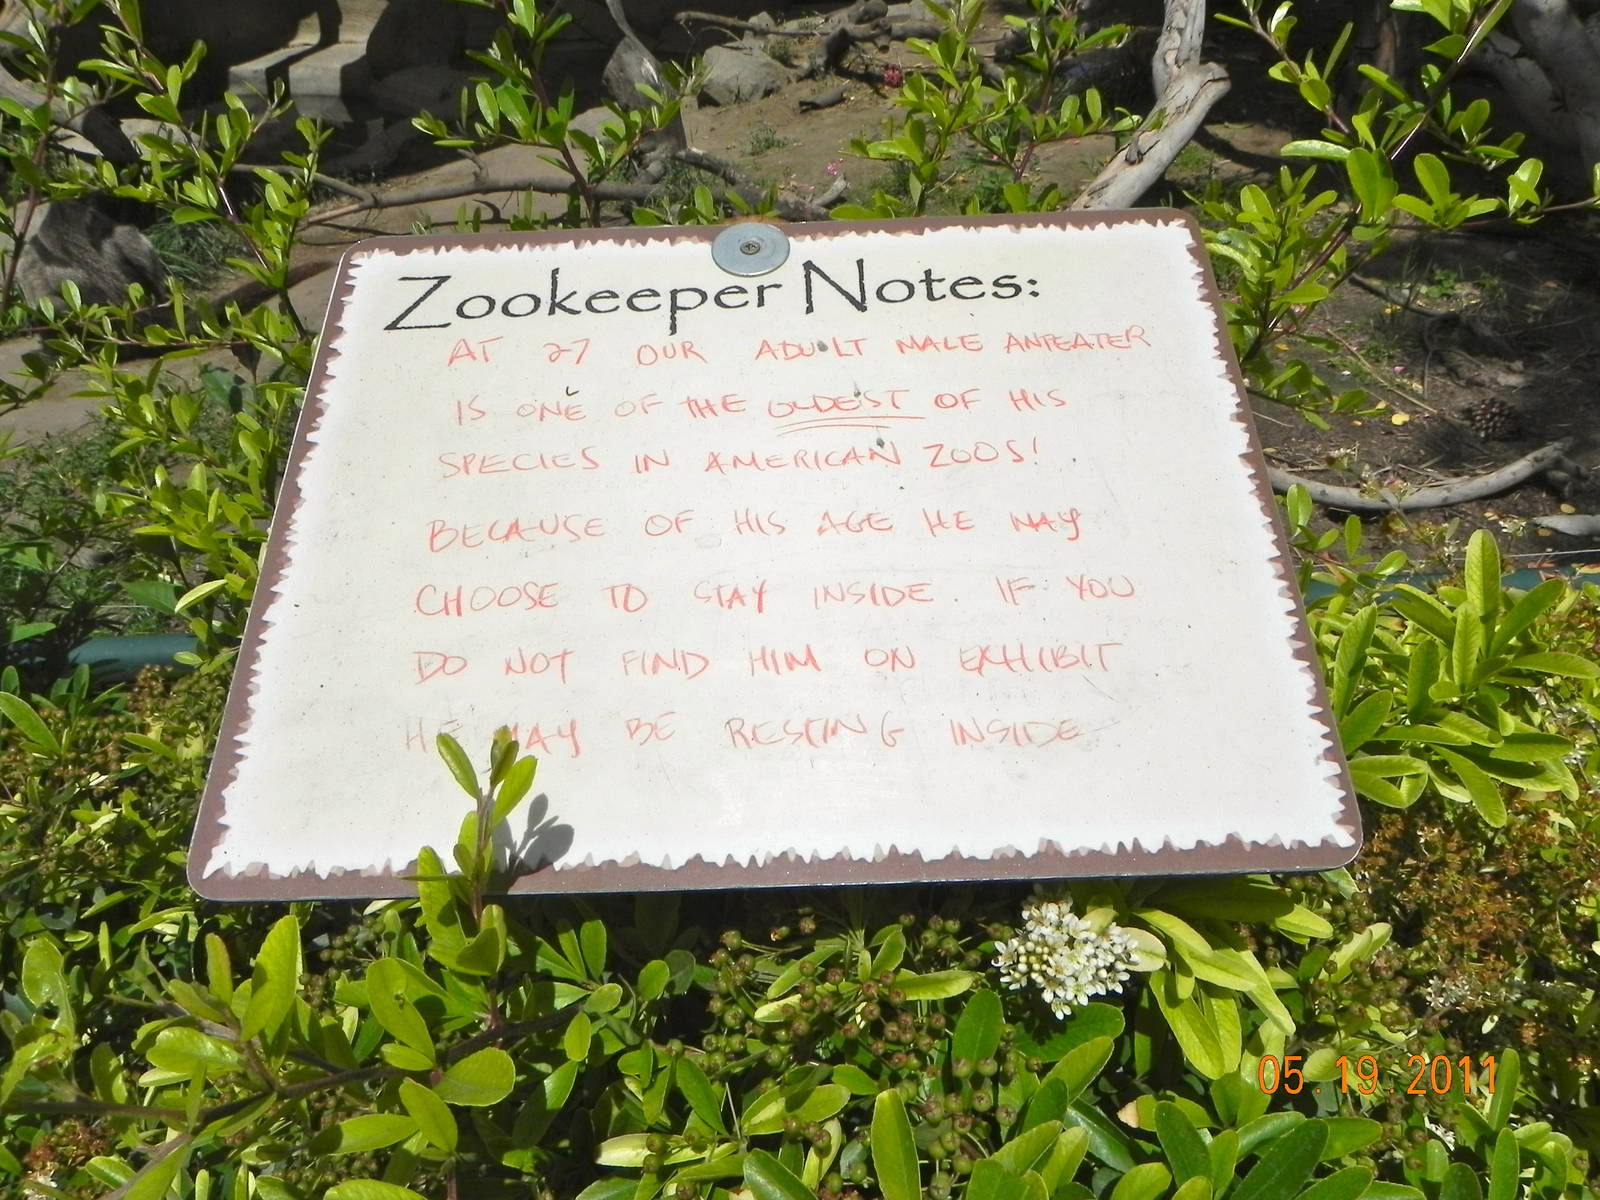 Zookeeper Notes:
AT 27 OUR ADULT MALE ANTEATER
IS ONE OF THE OLDEST OF HIS
SPECIES IN AMERICAN ZOOS!
BECAUSE OF HIS AGE HE MAY
CHOOSE TO STAY INSIDE. IF YOU
DO NOT FIND HIM ON EXHIBIT
HE MAY BE RESTING INSIDE
05.19.2011